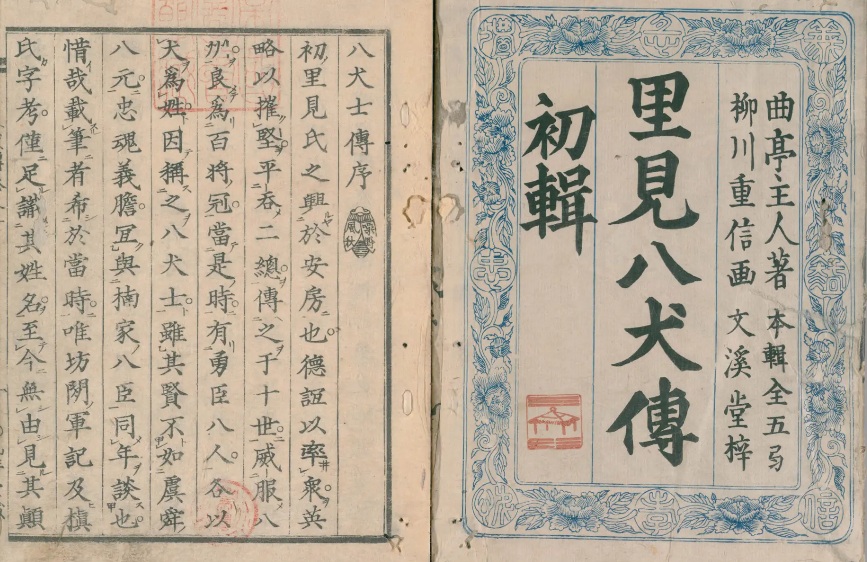 曲亭主人著 本輯全五
柳川重信画 文溪堂梓
里見八犬傳
初輯
八犬士傳序
初里見氏之興於安房也德誼以率衆英
略以摧堅平呑二總傳之于十世威服八
州良爲百將冠當是時有勇臣八人各以
犬爲姓因稱之八犬士雖其賢不如虞舜
八元忠魂義膽冝與楠家八臣同年談也
惜哉載筆者希於當時唯坊閒軍記及槇
氏字考僅足識其姓名至今無由見其顚